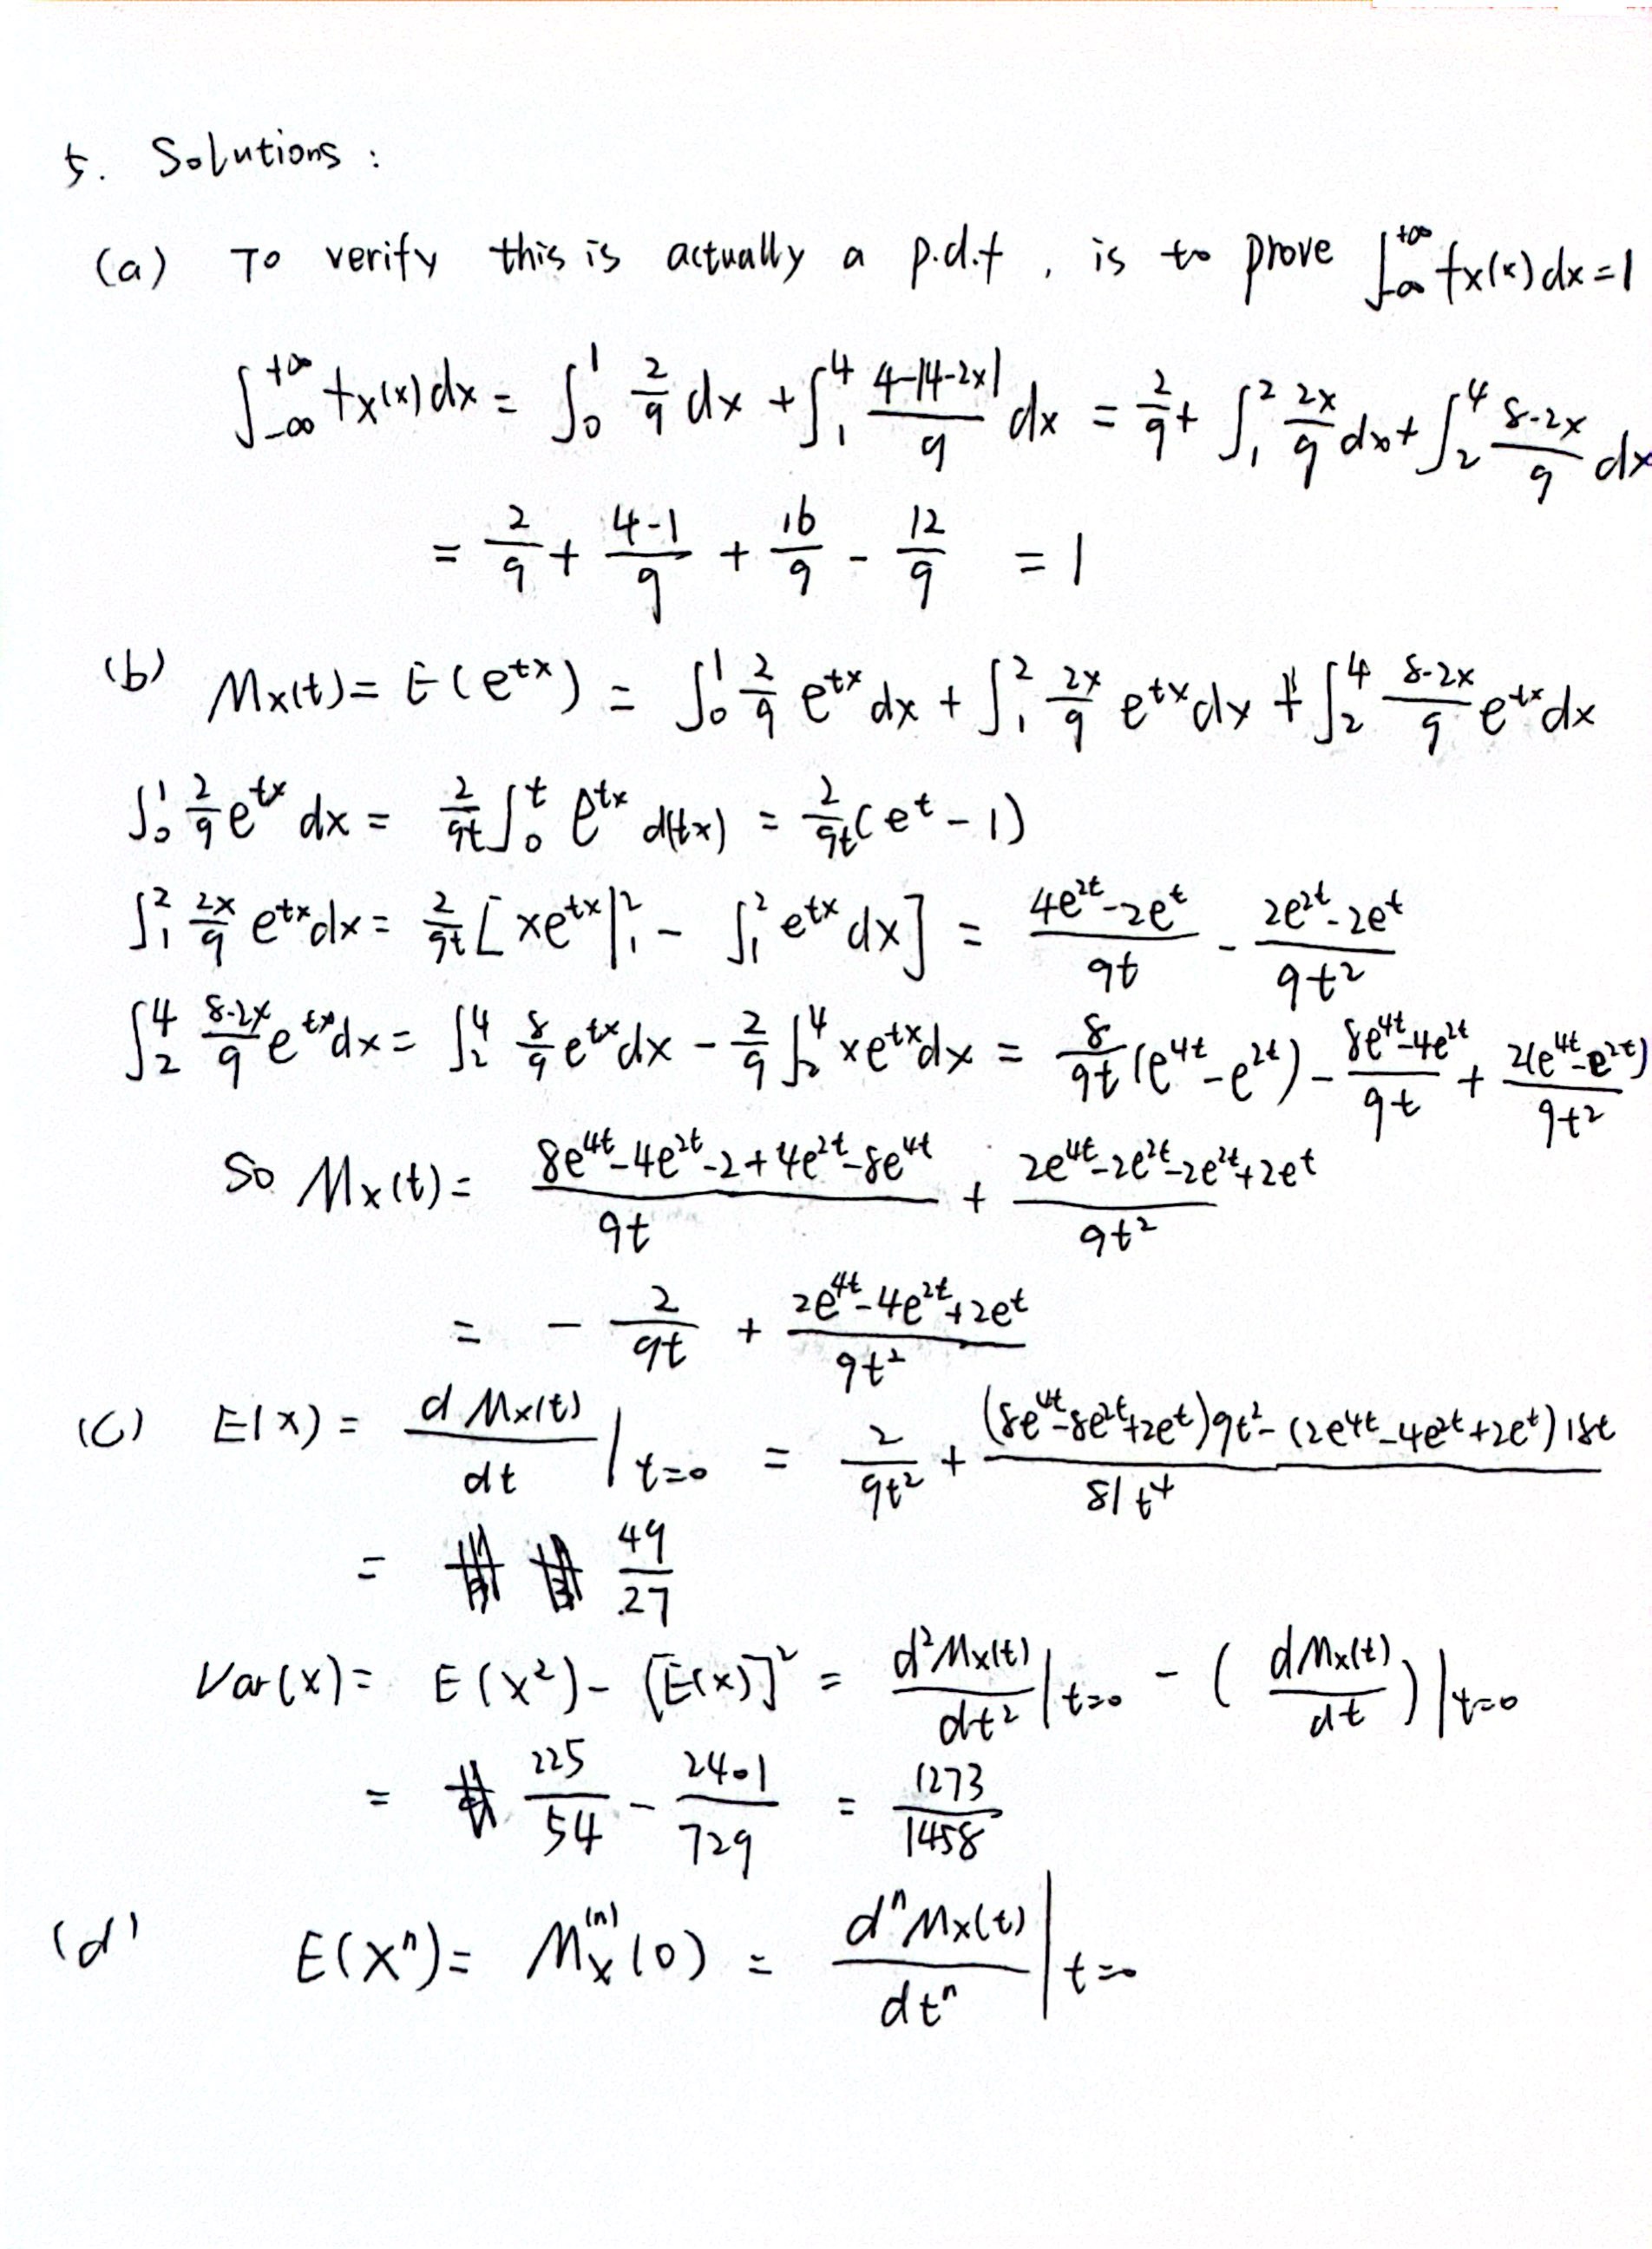 5. Solutions :
(a) To verify this is actually a p.d.f , is to prove ∫_{-∞}^{+∞} fx(x) dx = 1
∫_{-∞}^{+∞} fx(x) dx = ∫_0^1 2/9 dx + ∫_1^4 (4-|4-2x|)/9 dx = 2/9 + ∫_1^2 2x/9 dx + ∫_2^4 (8-2x)/9 dx
= 2/9 + (4-1)/9 + 16/9 - 12/9 = 1
(b) Mx(t) = E(e^{tx}) = ∫_0^1 2/9 e^{tx} dx + ∫_1^2 2x/9 e^{tx} dx + ∫_2^4 (8-2x)/9 e^{tx} dx
∫_0^1 2/9 e^{tx} dx = 2/9t ∫_0^t e^{tx} d(tx) = 2/9t (e^t - 1)
∫_1^2 2x/9 e^{tx} dx = 2/9t [ xe^{tx} |_1^2 - ∫_1^2 e^{tx} dx ] = (4e^{2t}-2e^t)/9t - (2e^{2t}-2e^t)/9t^2
∫_2^4 (8-2x)/9 e^{tx} dx = ∫_2^4 8/9 e^{tx} dx - 2/9 ∫_2^4 xe^{tx} dx = 8/9t (e^{4t}-e^{2t}) - (8e^{4t}-4e^{2t})/9t + 2(e^{4t}-e^{2t})/9t^2
So Mx(t) = (8e^{4t}-4e^{2t}-2+4e^{2t}-8e^{4t})/9t + (2e^{4t}-2e^{2t}-2e^{2t}+2e^t)/9t^2
= - 2/9t + (2e^{4t}-4e^{2t}+2e^t)/9t^2
(c) E(x) = d Mx(t)/dt |_{t=0} = 2/9t^2 + ((8e^{4t}-8e^{2t}+2e^t)9t^2 - (2e^{4t}-4e^{2t}+2e^t)18t)/81t^4
= 49/27
Var(x) = E(x^2) - [E(x)]^2 = d^2Mx(t)/dt^2 |_{t=0} - ( dMx(t)/dt ) |_{t=0}
= 225/54 - 2401/729 = 1273/1458
(d) E(X^n) = Mx^{(n)}(0) = d^n Mx(t)/dt^n |_{t=0}